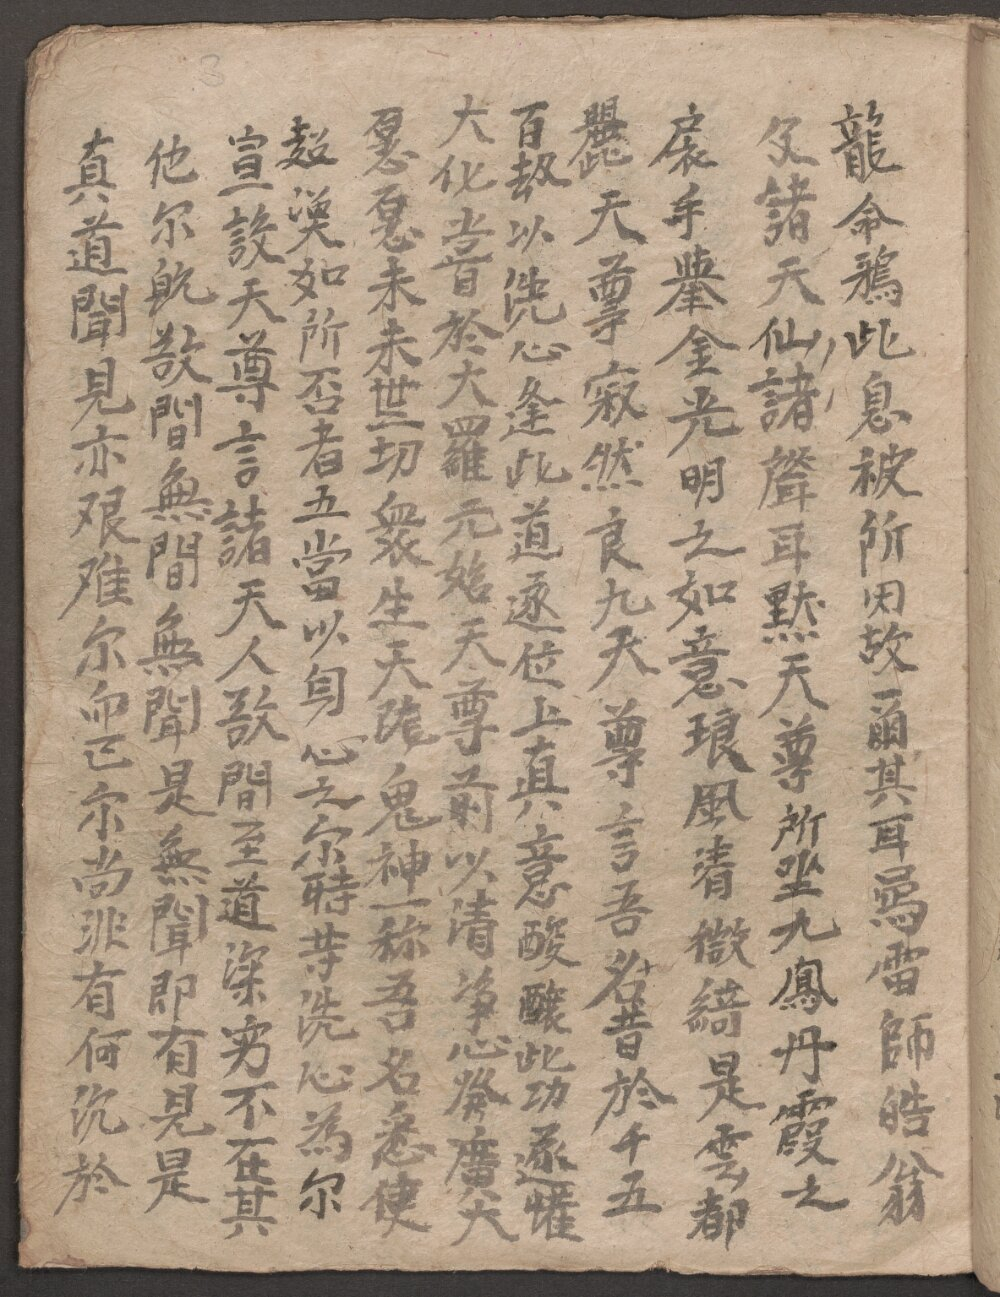 龍命鴉此息被所因故爾其耳焉雷師皓翁
文諸天仙諸聲耳黙天尊所坐九鳳丹霞之
扆手舉金光明之如意琅風清微綺是雲都
麗天尊寂然良九天尊言吾名昔於千五
百劫以洗心逢此道逐位上真意酸釀此功遂權
大化嘗於大羅元始天尊前以清淨心發廣大
願願未未世切衆生天龍鬼神一称吾名悉使
超渙如所否者五當以身心之尔時其洗心為尔
宣說天尊言諸天人欲聞至道深窈不在其
他尔旣欲聞無聞無聞是無聞即有見是
真道聞見亦艰难尔而已尔尚非有何况於